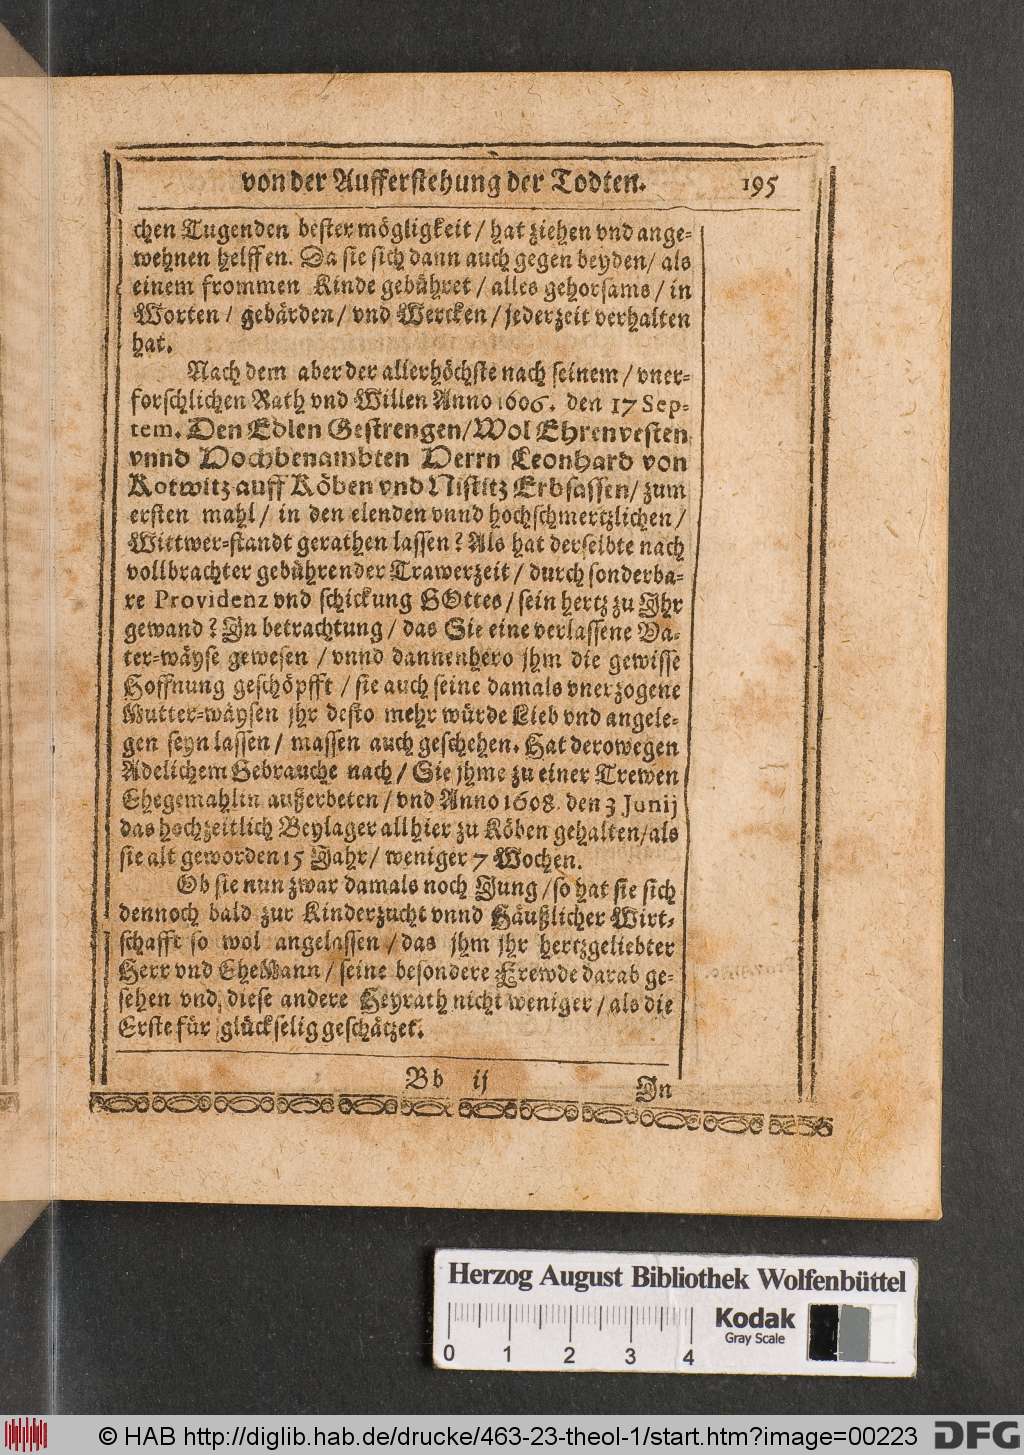 von der Aufferstehung der Todten. 195
chen Tugenden bester mögligkeit / hat ziehen vnd ange-
wehnen helffen. Da sie sich dann auch gegen beyden / als
einem frommen Kinde gebühret / alles gehorsams / in
Worten / gebärden / vnd Wercken / jederzeit verhalten
hat.
Nach dem aber der allerhöchste nach seinem / vner-
forschlichen Rath vnd Willen Anno 1606. den 17 Sep-
tem. Den Edlen Gestrengen / Wol Ehrenvesten
vnnd Hochbenambten Herrn Leonhard von
Kotwitz auff Köben vnd Nistitz Erbsassen / zum
ersten mahl / in den elenden vnnd hochschmertzlichen /
Wittwer-standt gerathen lassen? Als hat derselbte nach
vollbrachter gebührender Trawerzeit / durch sonderba-
re Providenz vnd schickung GOttes / sein hertz zu Ihr
gewand? In betrachtung / das Sie eine verlassene Va-
ter-wäyse gewesen / vnnd dannenhero jhm die gewisse
Hoffnung geschöpfft / sie auch seine damals vnerzogene
Mutter-wäysen jhr desto mehr würde Lieb vnd angele-
gen seyn lassen / massen auch geschehen. Hat derowegen
Adelichem Gebrauche nach / Sie jhme zu einer Trewen
Ehegemahlin außerbeten / vnd Anno 1608. den 3 Junij
das hochzeitlich Beylager allhier zu Köben gehalten / als
sie alt geworden 15 Jahr / weniger 7 Wochen.
Ob sie nun zwar damals noch Jung / so hat sie sich
dennoch bald zur Kinderzucht vnnd Häußlicher Wirt-
schafft so wol angelassen / das jhm jhr hertzgeliebter
Herr vnd EheMann / seine besondere Frewde darab ge-
sehen vnd, diese andere Heyrath nicht weniger / als die
Erste für glückselig geschätzet.
Bb ij In
Herzog August Bibliothek Wolfenbüttel
Kodak
Gray Scale
0 1 2 3 4
© HAB http://diglib.hab.de/drucke/463-23-theol-1/start.htm?image=00223 DFG